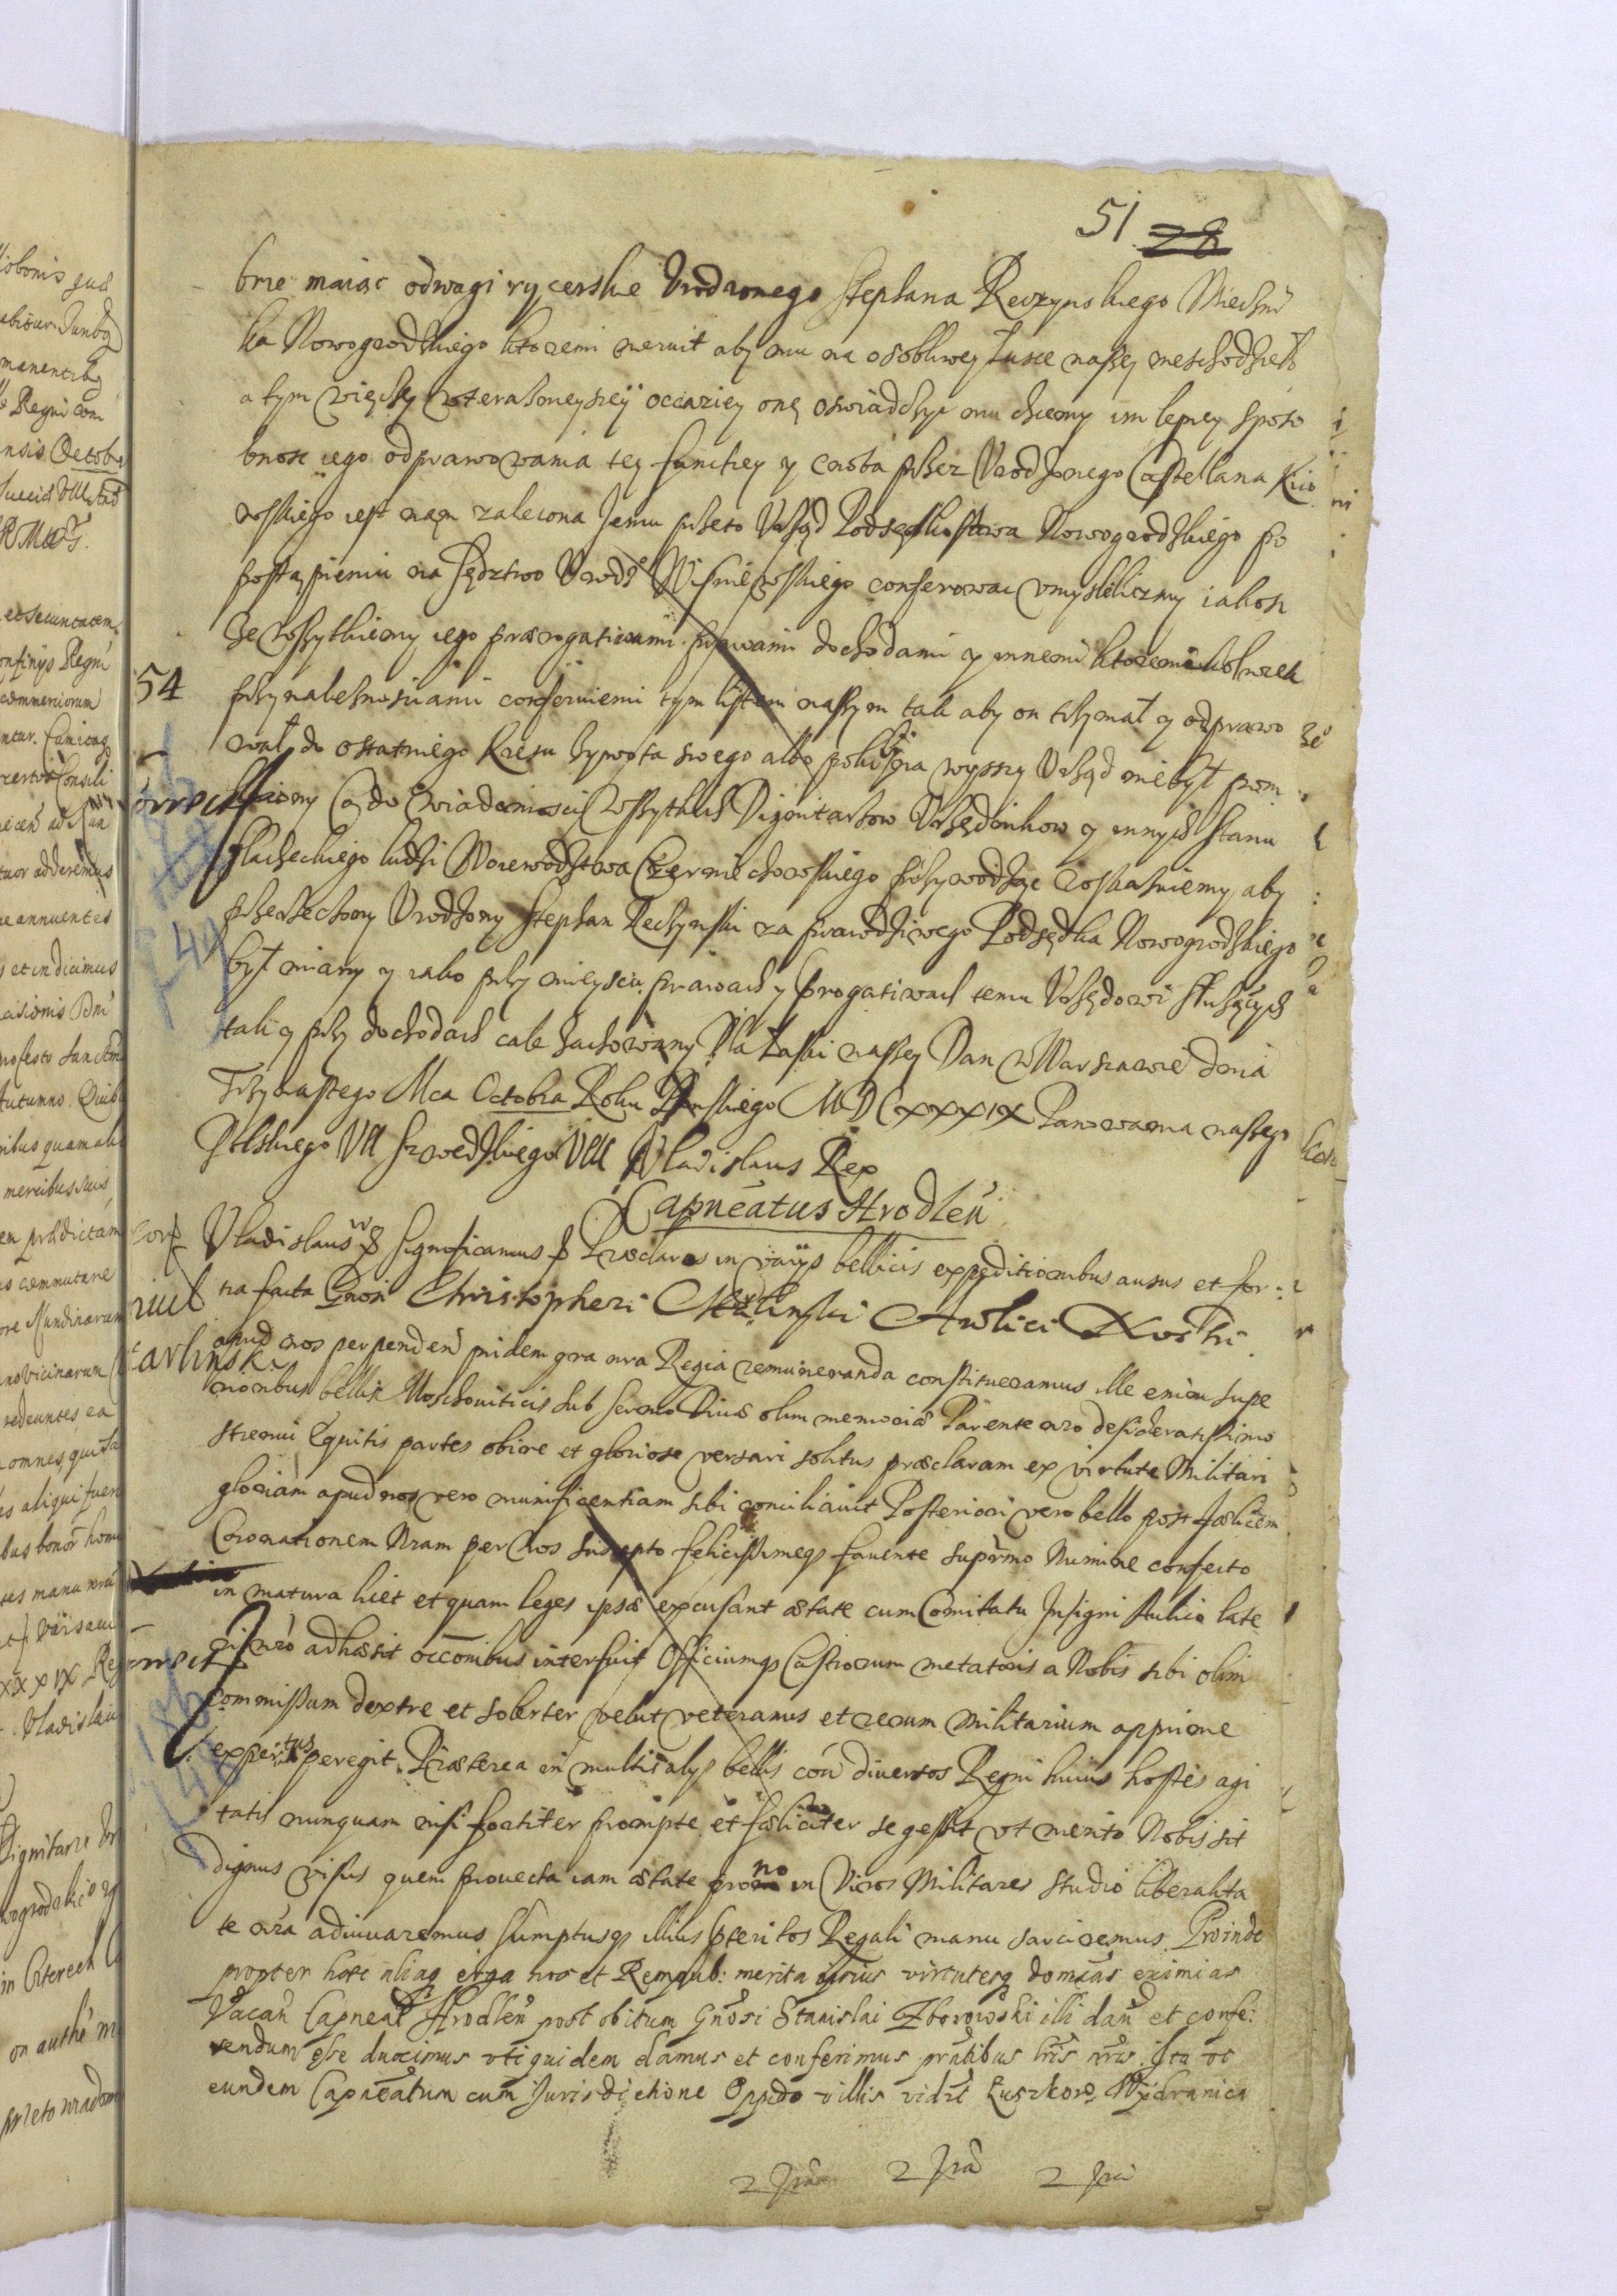 51 28
bne maiąc odwagi rycerskie Vrodzonego Stephana Reczynskiego Mieczni
ka Nowogrodskiego ktoremi meruit aby mu na osobliwey łasce naszey nieschodziło
a tym więcey w teraznieyszey occaziey onę oswiadczyc mu chcemy im lepiey sposo
bnosc iego odprawowania tey funckey y cnota przez Vrodzonego Castellana Kiio
wskiego iest nam zalecona Jemu przeto Vrząd Podsędkostwa Nowogrodskiego po
postąpieniu na sędztwo Vrodz Wisniewskiego conferowac vmyslilismy iakosz
ze wszytkiemy iego praerogatiwami prawami dochodami y innemi ktoremikolwiek
54 przynaleznosciami conferuiemi tym listem naszym tak aby on trzymał y odprawo
wał do ostatniego kresu zywota swego albo poki na wyszszy Vrząd nie był prom
Co do wiadomosci wszytkich Dignitarzow Vrzędnikow y innych stanu
szlacheckiego ludzi Woiewodztwa Czerniechowskiego przywodząc roskazuiemy aby
przerzeczony Vrodzony Stephan Reczynski za prawdziwego Podsędka Nowogrodskiego
był miany y iako przy mieyscu prawach y prerogatiwach temu Vrzędowi słuzących
tak y przy dochodach cale zachowany Dla łaski naszey Dan w Warszawie dnia
Trzynastego Mca Octobra Roku Panskiego MDCXXXIX Panowania naszego
Polskiego VII Szwedzkiego VIII Vladislaus Rex
Capneatus Hrodlen
Vladislaus Significamus Praeclara in varijs bellicis expeditionibus ausus et for:
tia facta Gnosi Christopheri Karlinski Aulici Nostri
apud nos perpenden pridem gra nra Regia remuneranda constitueramus ille enim supe
rioribus bellis Moschouiticis sub sermo Diuae olim memoriae Parente nro desideratissimo
strenui Equitis partes obire et gloriose versari solitus praeclaram ex virtute Militari
gloriam apud nos vero munificentiam sibi conciliauit Posteriori vero bello post foelicem
Coronationem Nram per Nos suscepto felicissimeq fauente supremo Numine confecto
in matura licet et quam leges ipsae excusant aetate cum Comitatu Insigni Aulico late
ri nro adhaesit omnibus interfuit Officiumq Castrorum metatoris a Nobis sibi olim
commissum dextre et solerter velut veteranus et rerum militarium apprime
expertus peregit Praeterea in multis alys bellis con diuersos Regni huius hostes agi
tatis nunquam nisi fortiter prompte et foeliciter se gessit vt merito Nobis sit
dignus visus quem prouecta iam aetate prono in Viros Militares studio liberalita
te nra adiuuaremus sumptusq illius Regali manu sarciremus. Proinde
propter haec aliaq erga nos et Rempub: merita ipsius virtutesq eximias
Vacan Capneat Hrodlen post obitum Gnosi Stanislai Zborowski illi dan et confe:
rendum esse duximus vti quidem damus et conferimus pntibus lris nris. Ita vt
eundem Capneatum cum Jurisdictione Oppido villis vidzt Łuszkow
2 2 2